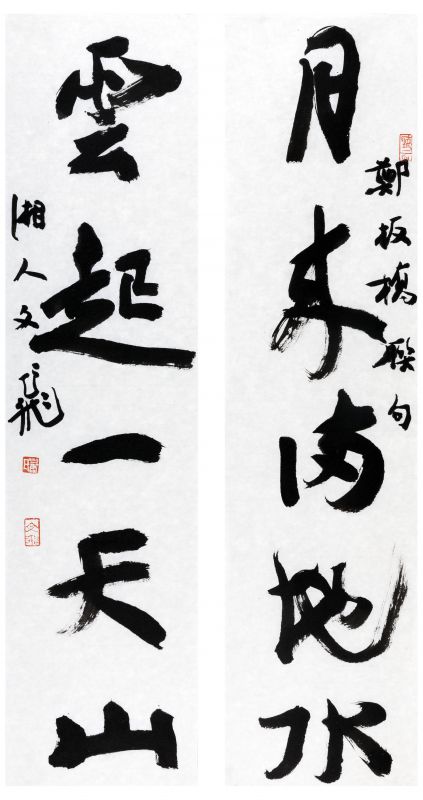 月来满地水
鄭板橋聯句
雲起一天山
湘人文飛